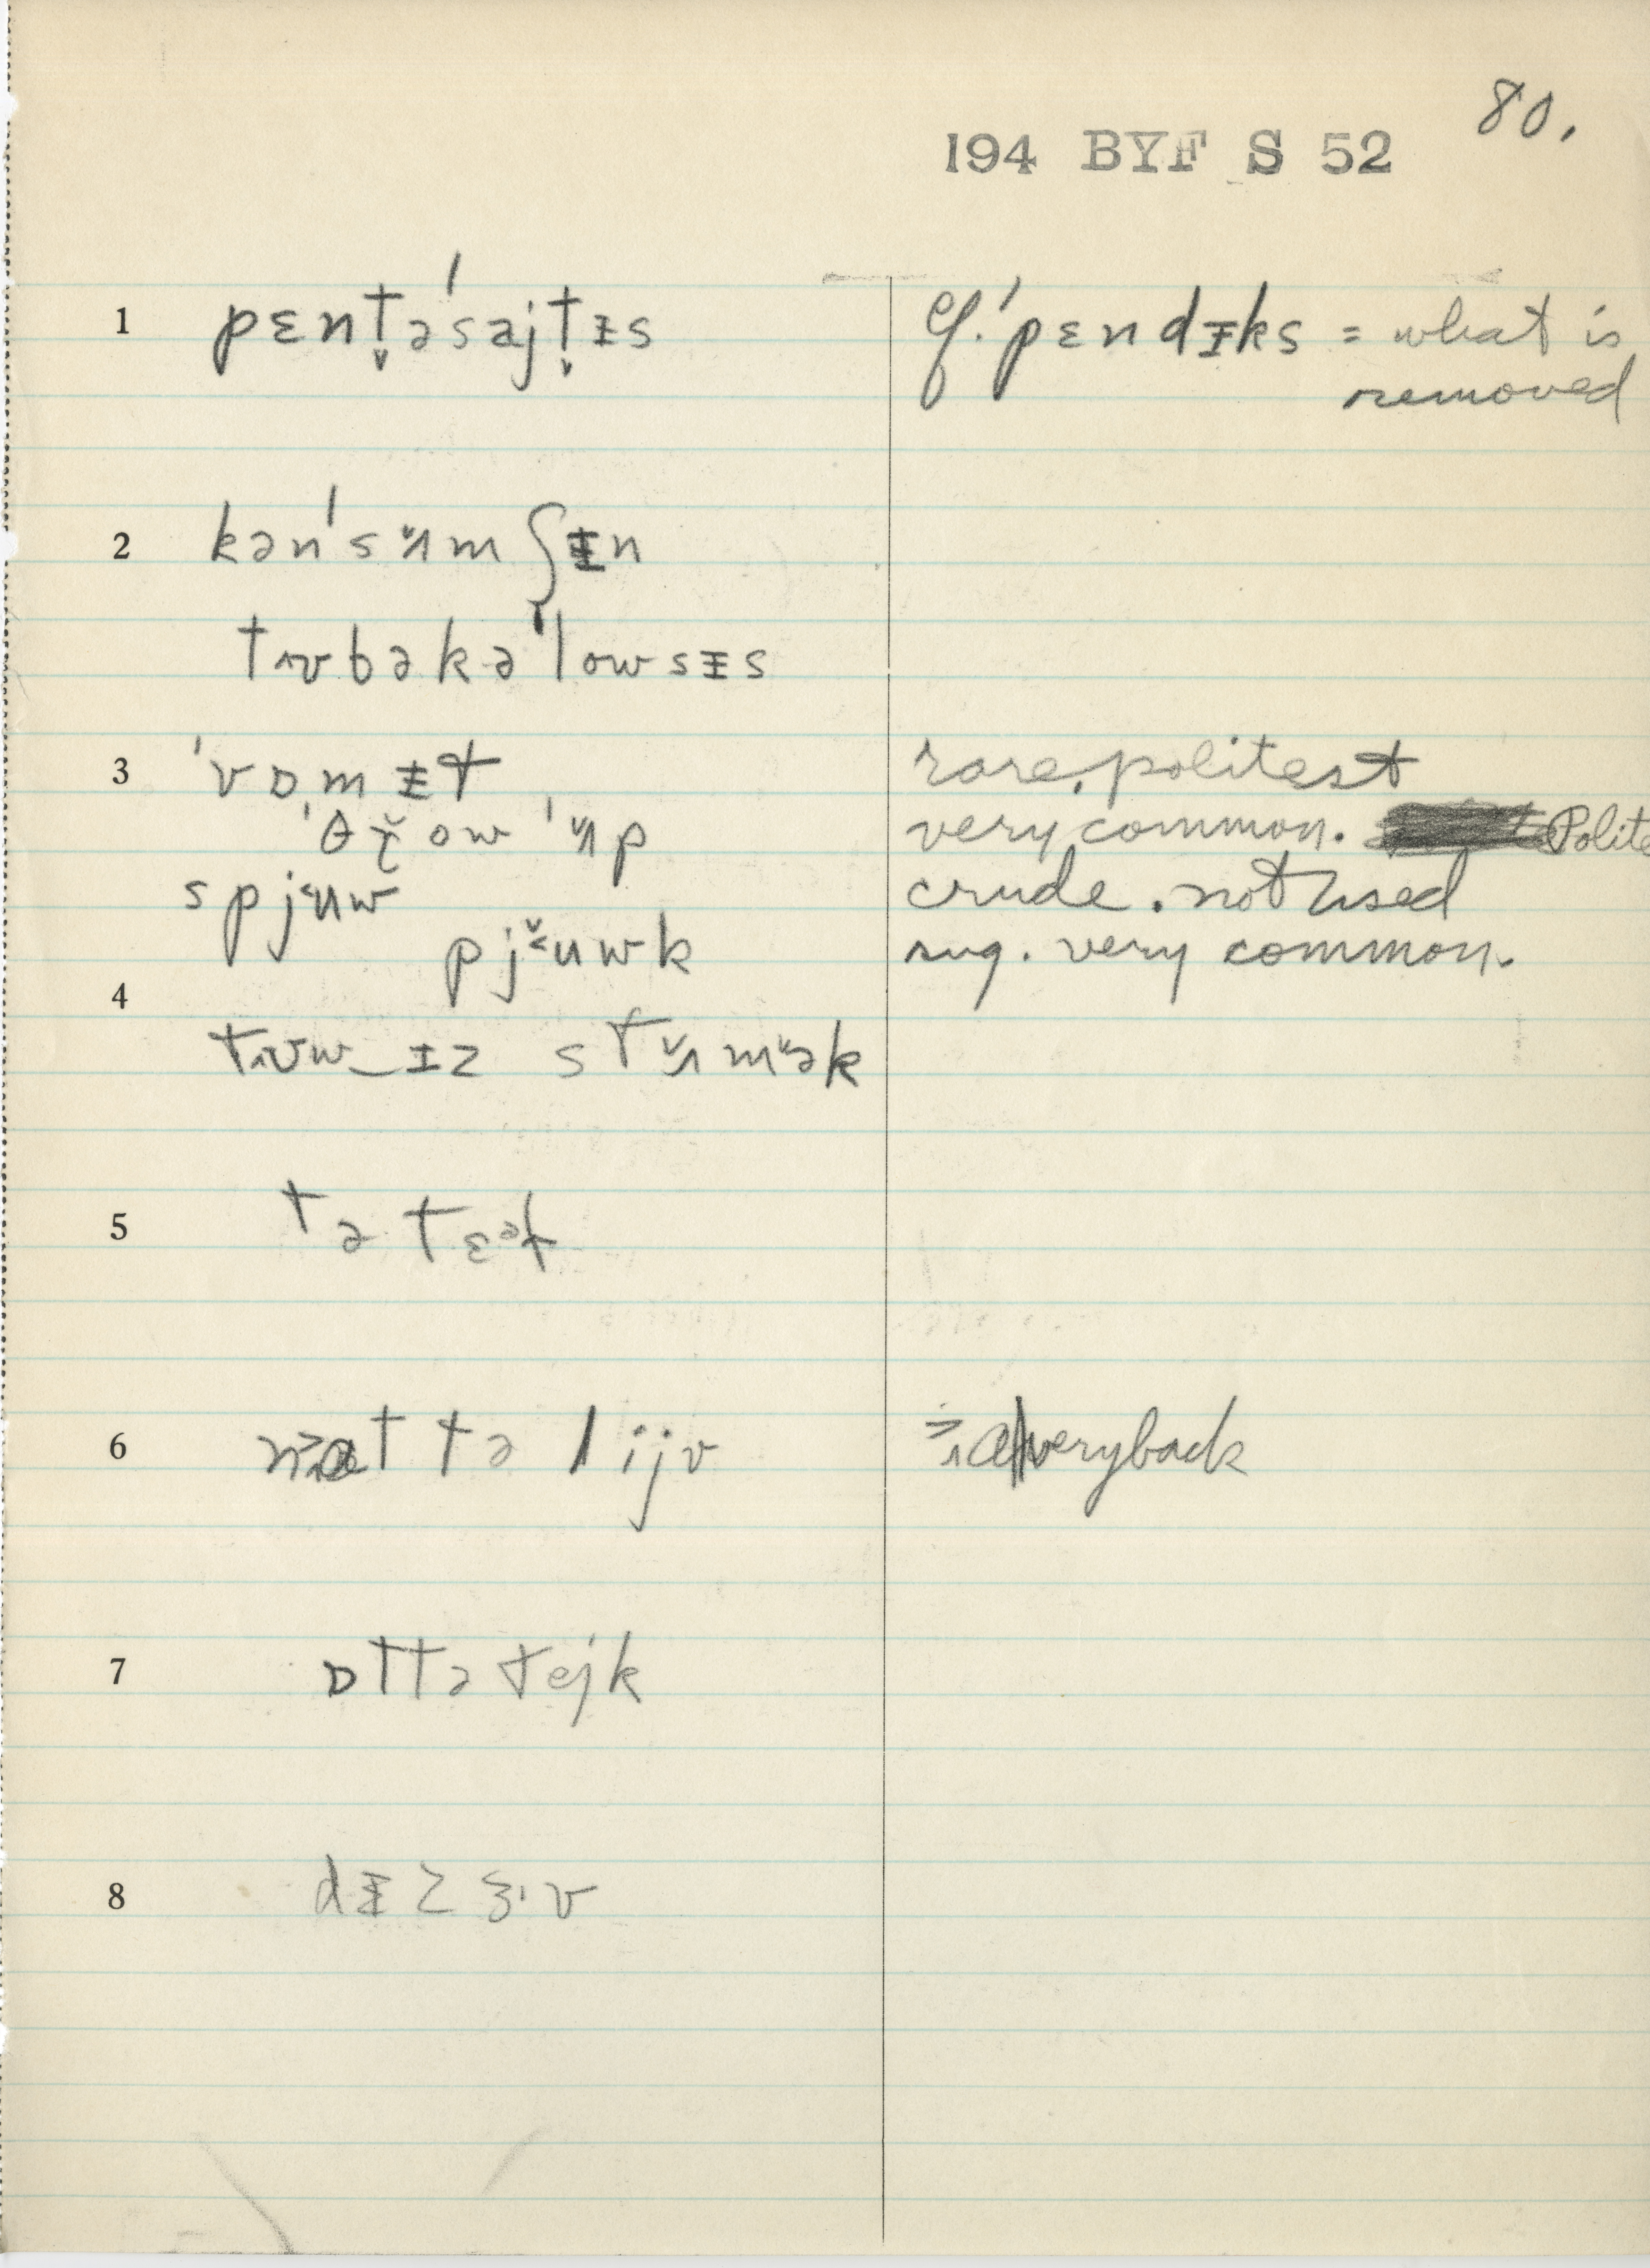 80.
194 BYF S 52
1 pɛnt̬əˈsajt̬ɪ̵s cf. ˈpɛndɪ̵ks = what is
removed
2 kənˈsʌmʃɪ̵n
tʌʊbəkəˈlowsɪ̵s
3 ˈvɒmɪ̵t rare, politest
ˈθɹ̌ow ˈʌp very common. Polite
spjʉw crude. not used
pjʉwk sug. very common.
4
tʌʊw_ɪ̵z stʌmək
5 tə tɛət
6 tə lijv very back
7 ɒttə tejk
8 dɪ̵zɜ·v